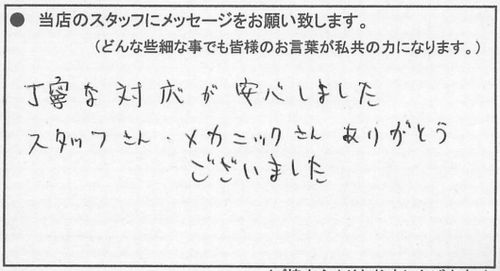 ● 当店のスタッフにメッセージをお願い致します。
（どんな些細な事でも皆様のお言葉が私共の力になります。）
丁寧な対応が安心しました
スタッフさん・メカニックさんありがとう
ございました